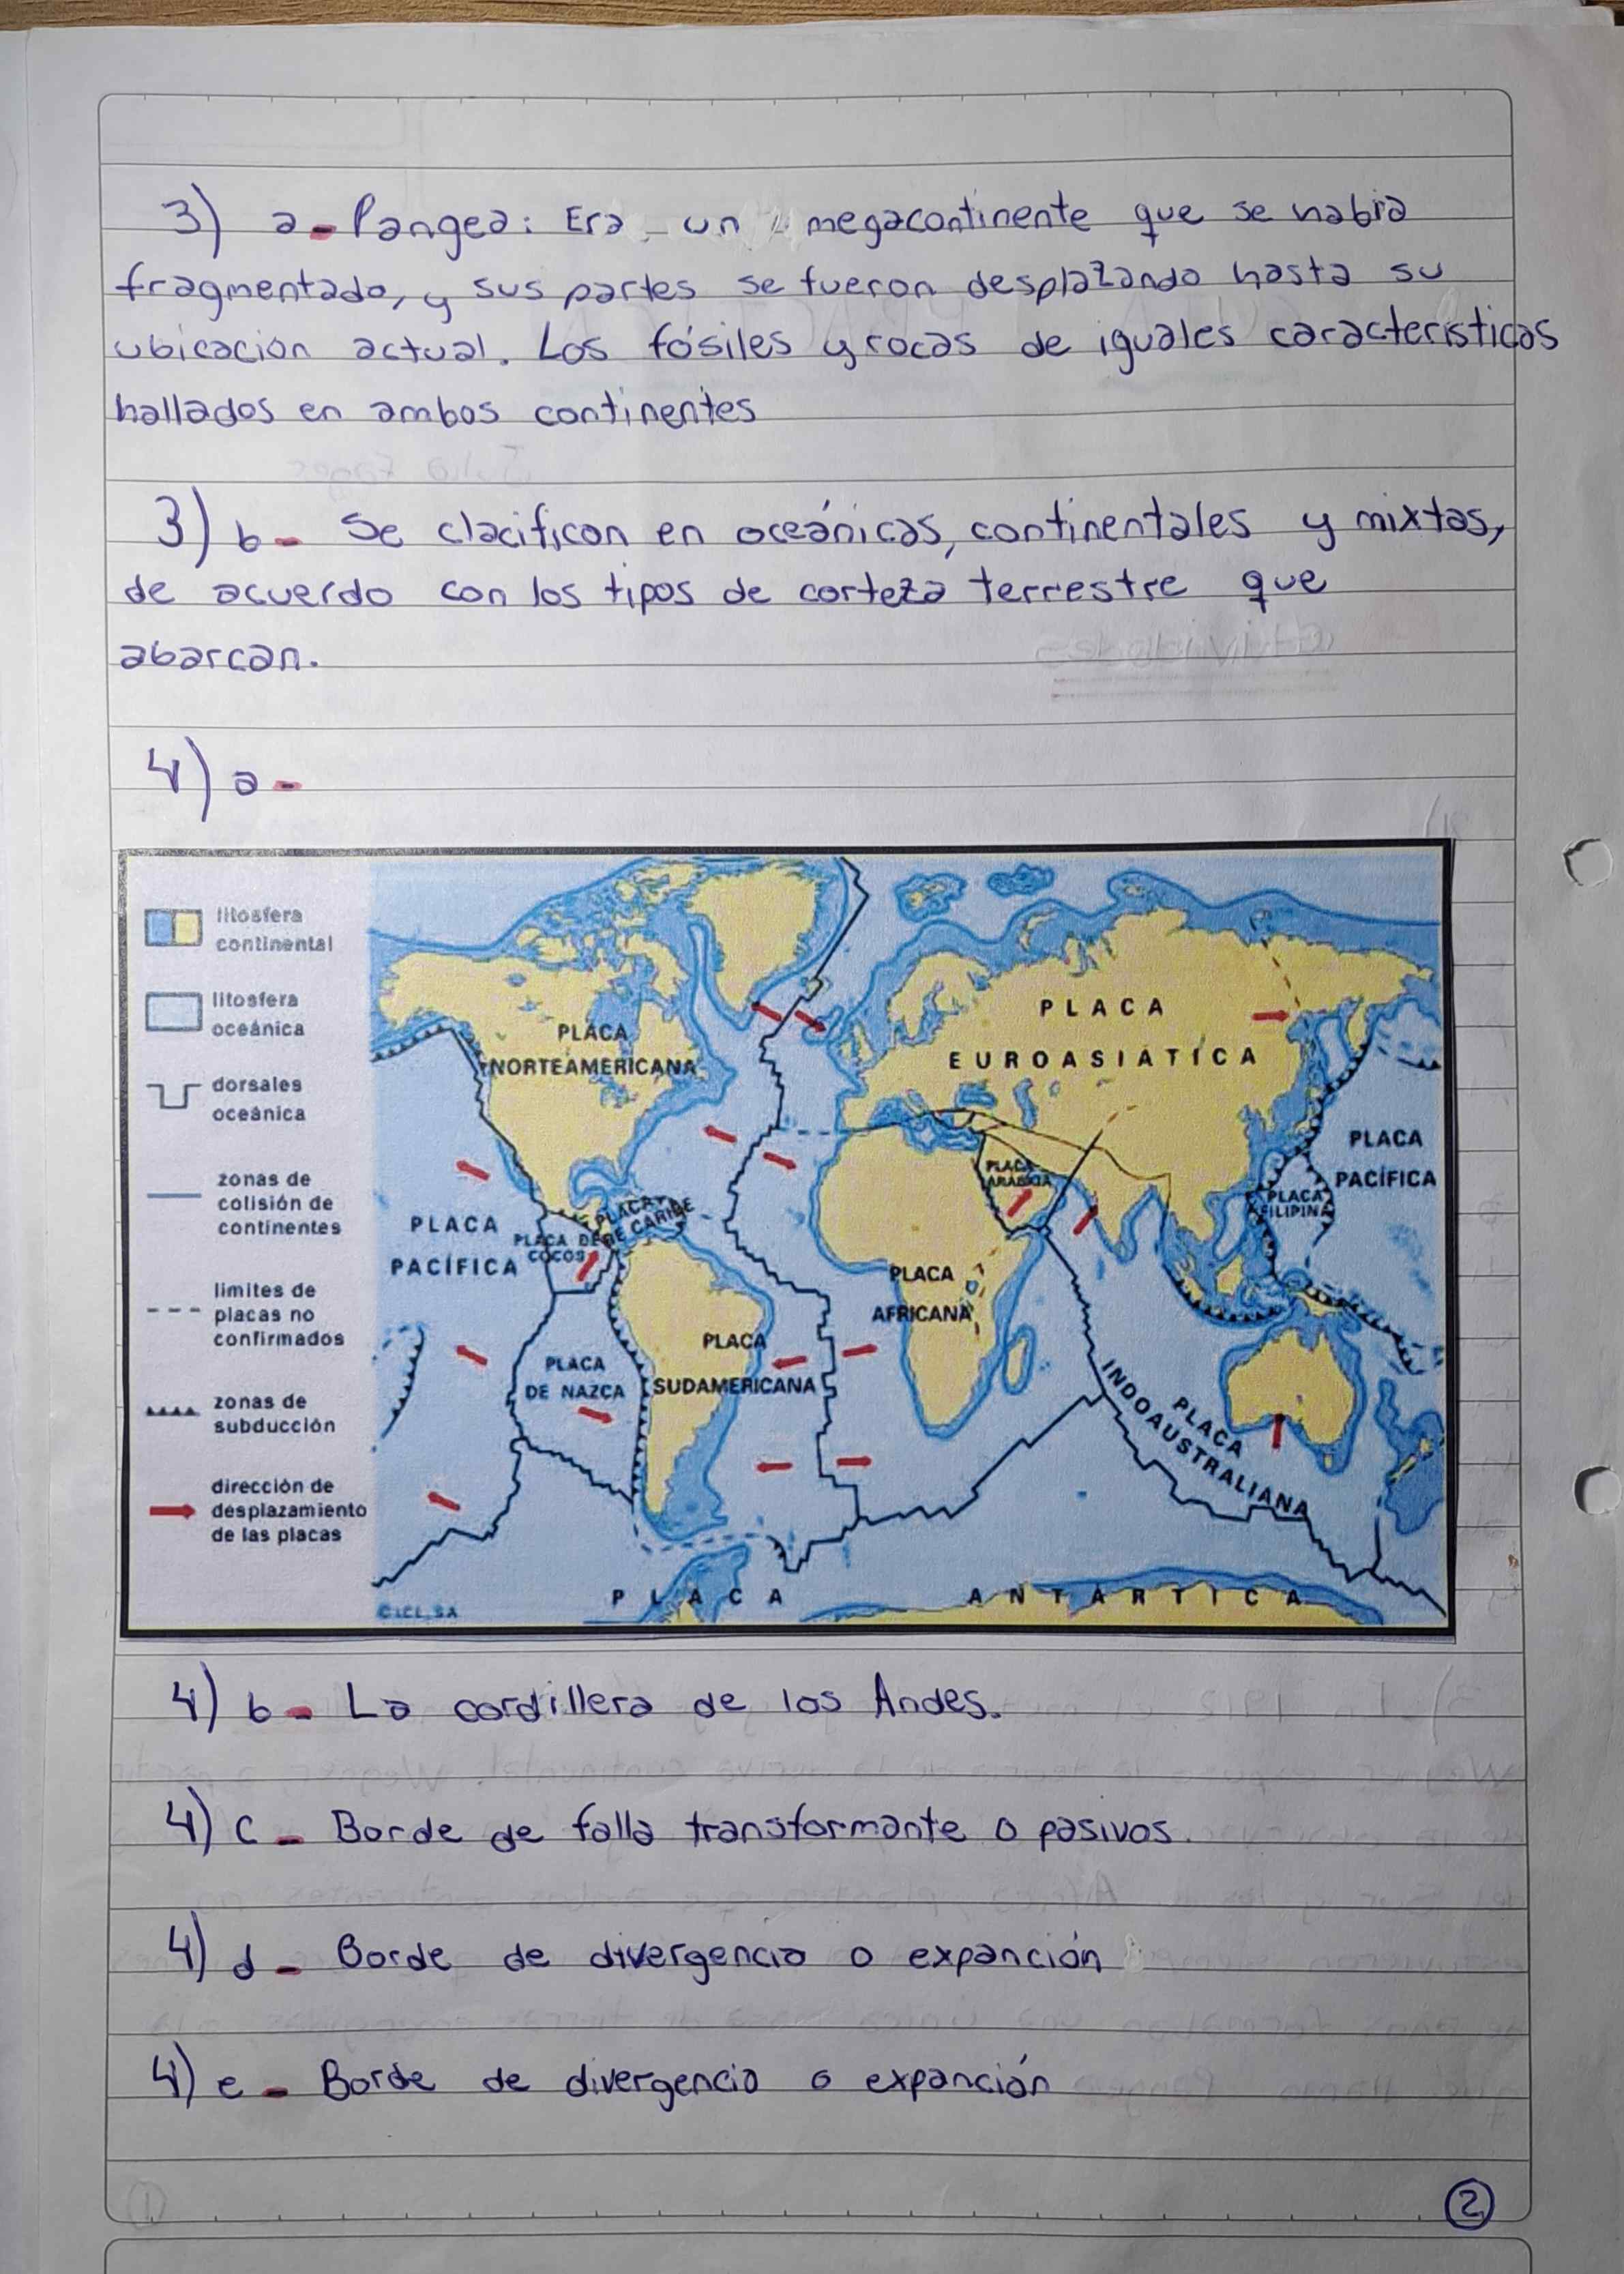 3) a- Pangea: Era un megacontinente que se habia
fragmentado, y sus partes se fueron desplazando hasta su
ubicación actual. Los fósiles y rocas de iguales caracteristicas
hallados en ambos continentes
3) b- Se clacifican en oceánicas, continentales y mixtas,
de acuerdo con los tipos de corteza terrestre que
abarcan.
4) a-
litosfera
continental
litosfera
oceánica
dorsales
oceánica
zonas de
colisión de
continentes
limites de
placas no
confirmados
zonas de
subducción
dirección de
desplazamiento
de las placas
PLACA
NORTEAMERICANA
PLACA
EUROASIÁTICA
PLACA
PACÍFICA
PLACA
ARABIGA
PLACA
FILIPINA
PLACA
PACÍFICA
PLACA DE
COCOS
PLACA
DE CARIBE
PLACA
AFRICANA
PLACA
DE NAZCA
PLACA
SUDAMERICANA
PLACA
INDOAUSTRALIANA
PLACA ANTÁRTICA
4) b- La cordillera de los Andes.
4) c- Borde de falla transformante o pasivos.
4) d- Borde de divergencia o expanción
4) e- Borde de divergencia o expanción
2